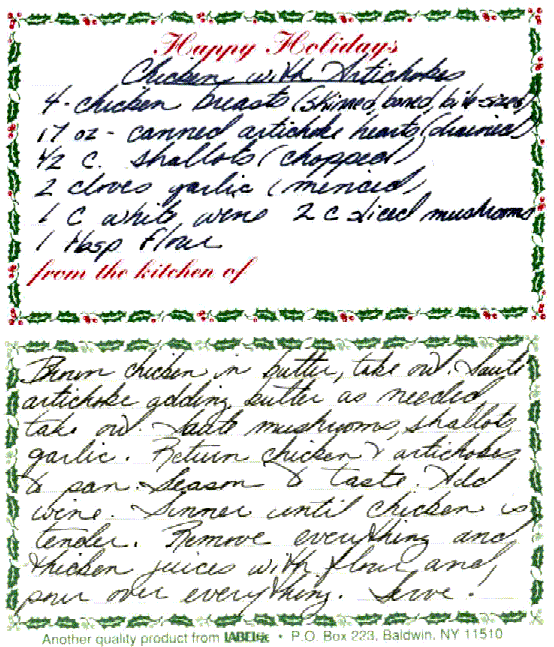 Happy Holidays
Chicken with Artichokes
4 - chicken breasts (skinned, boned, bite-sized)
17 oz - canned artichoke hearts (drained)
1/2 c. shallots (chopped)
2 cloves garlic (minced)
1 c white wine 2 c sliced mushrooms
1 tbsp flour
from the kitchen of
Brown chicken in butter, take out. Saute
artichoke adding butter as needed
take out. Saute mushrooms, shallots,
garlic. Return chicken & artichokes
to pan. Season to taste. Add
wine. Simmer until chicken is
tender. Remove everything and
thicken juices with flour and
pour over everything. Serve!
Another quality product from LABELite • P.O. Box 223, Baldwin, NY 11510